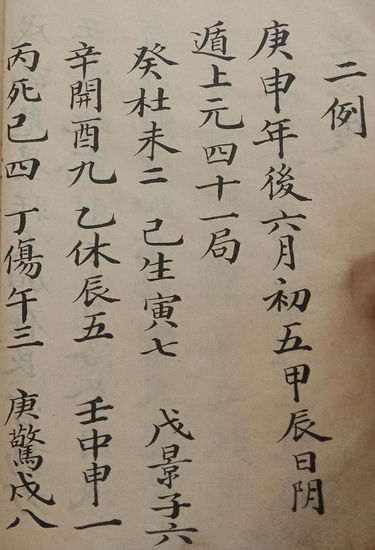 二例
庚申年後六月初五甲辰日阴
遁上元四十一局
癸杜未二 己生寅七 戊景子六
辛開酉九 乙休辰五 壬中申一
丙死巳四 丁傷午三 庚驚戌八